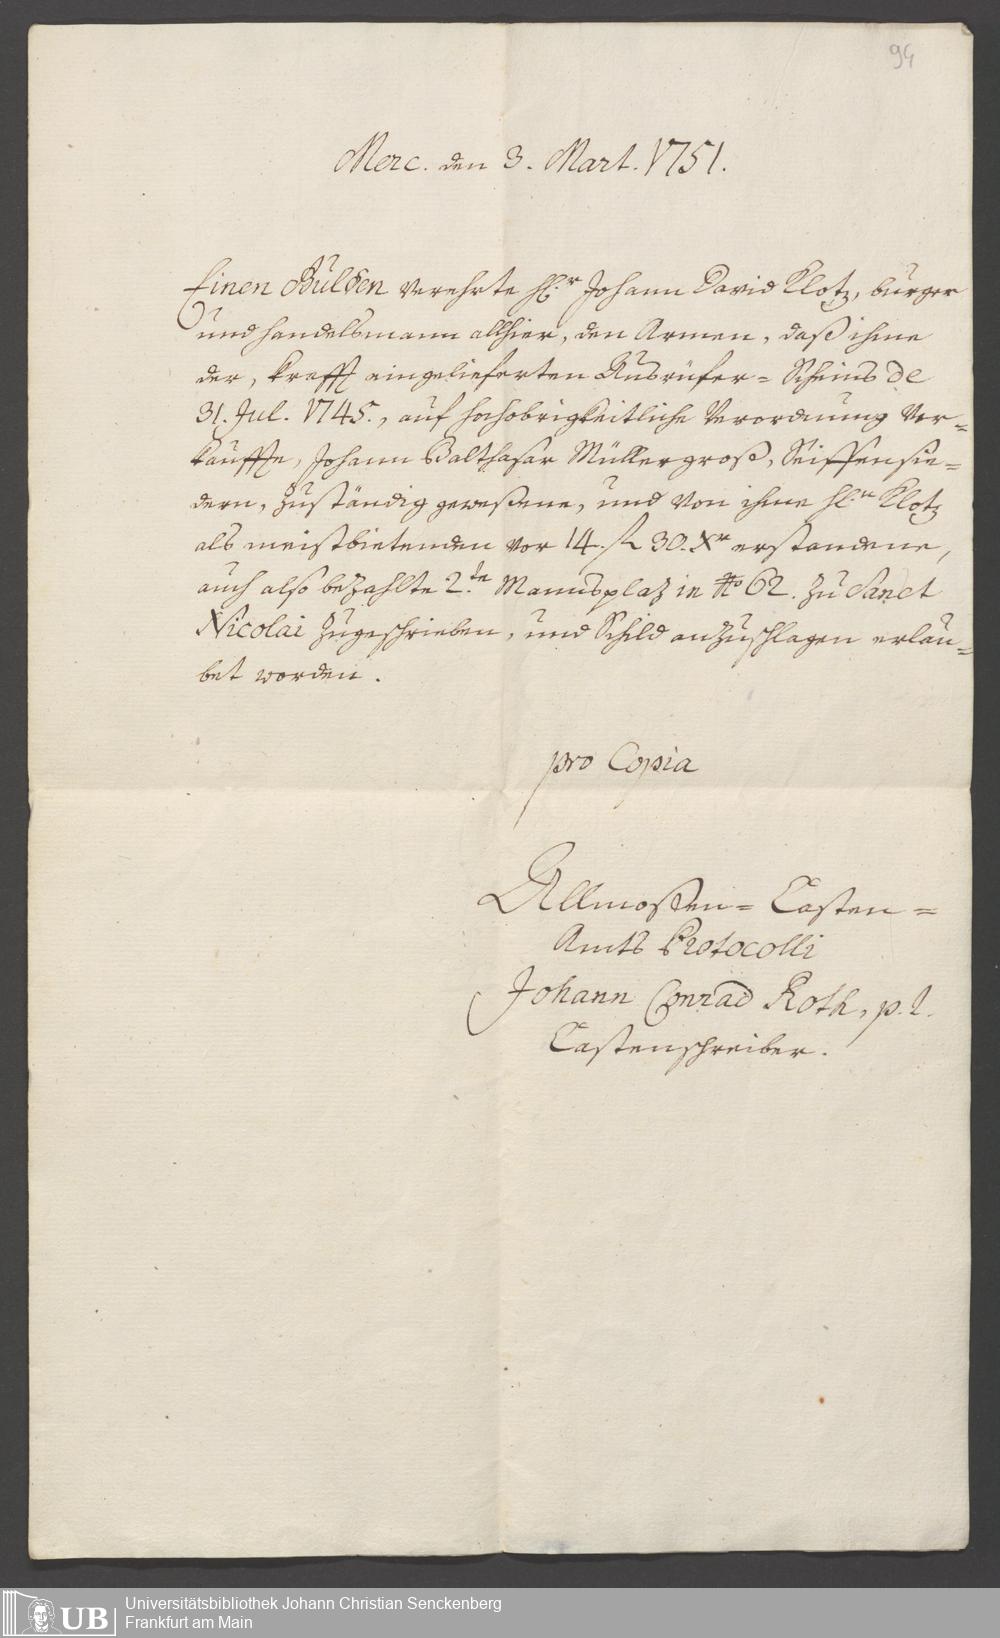 94
Merc. den 3. Mart. 1751.
Einen Gulden verehrte H.r Johann David Klotz, burger
und handelsmann allhier, den Armen, daß ihme
der, krafft eingelieferten Ausrüfer=Scheins de
31. Jul. 1745., auf hochobrigkeitliche Verordnung ver=
kauffte, Johann Balthasar Müllergroß, Seiffensie=
dern, zuständig geweßene, und von ihme H.n Klotz
als meistbietenden vor 14. fl 30. Xr erstandene,
auch also bezahlte 2.te Mannsplaz in No 62. zu Sanct
Nicolai zugeschrieben, und Schild anzuschlagen erlau=
bet worden.
pro Copia
Allmoßen=Casten=
Amts Protocolli
Johann Conrad Roth, p. t.
Castenschreiber.
UB
Universitätsbibliothek Johann Christian Senckenberg
Frankfurt am Main